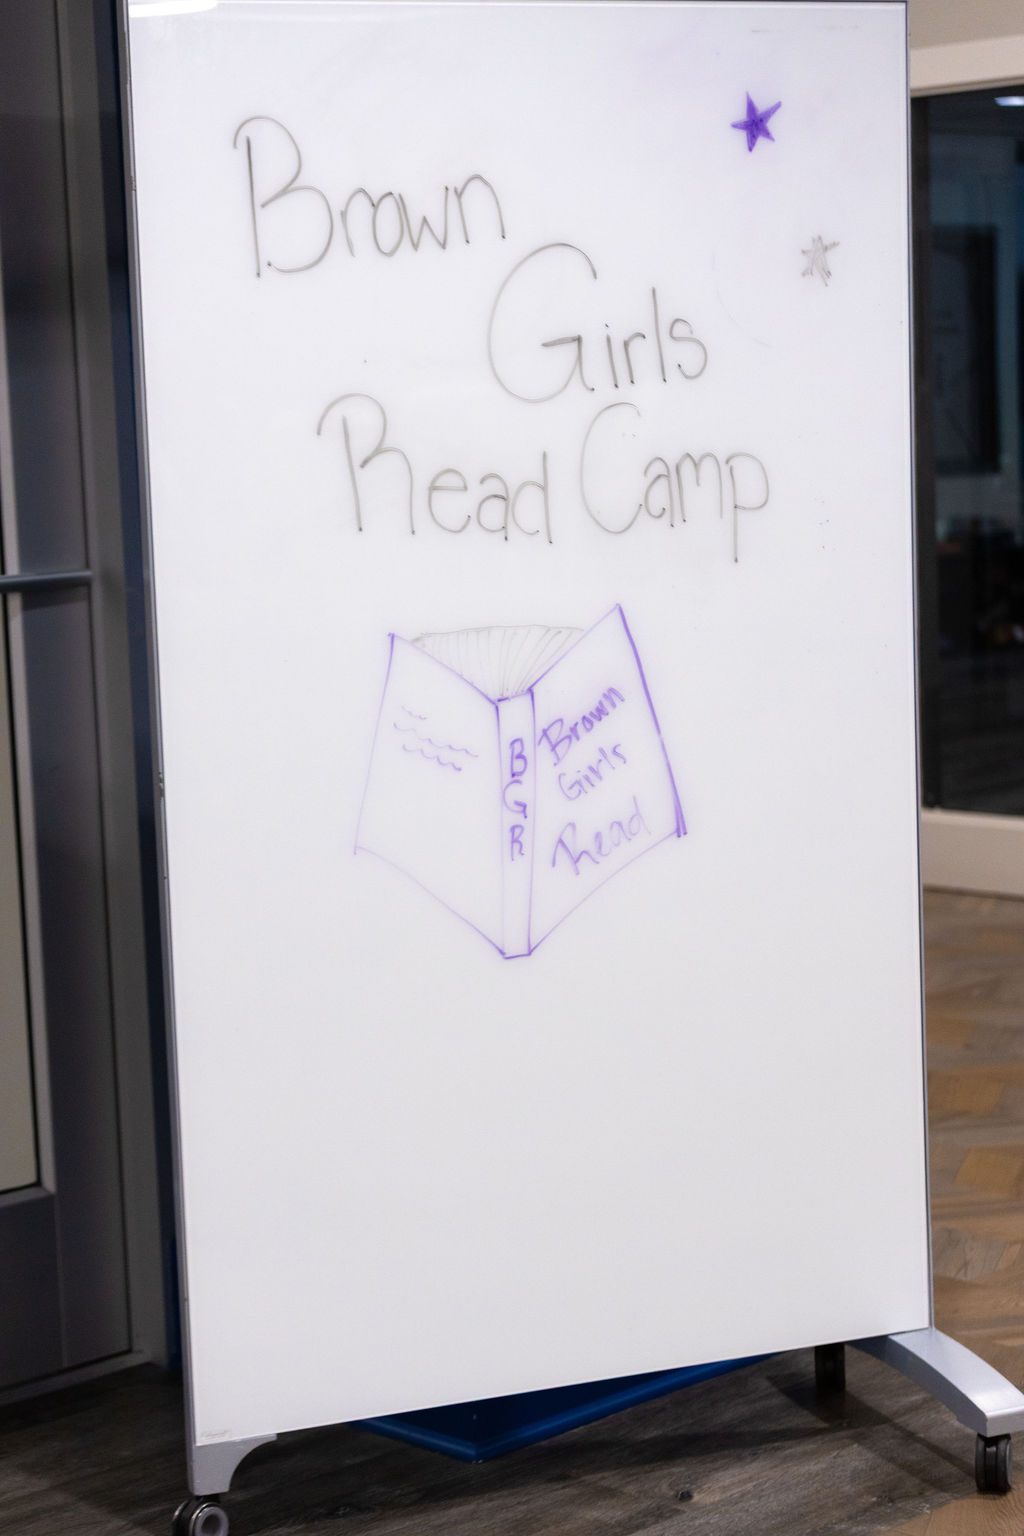 Brown
Girls
Read Camp
B
G
R
Brown
Girls
Read